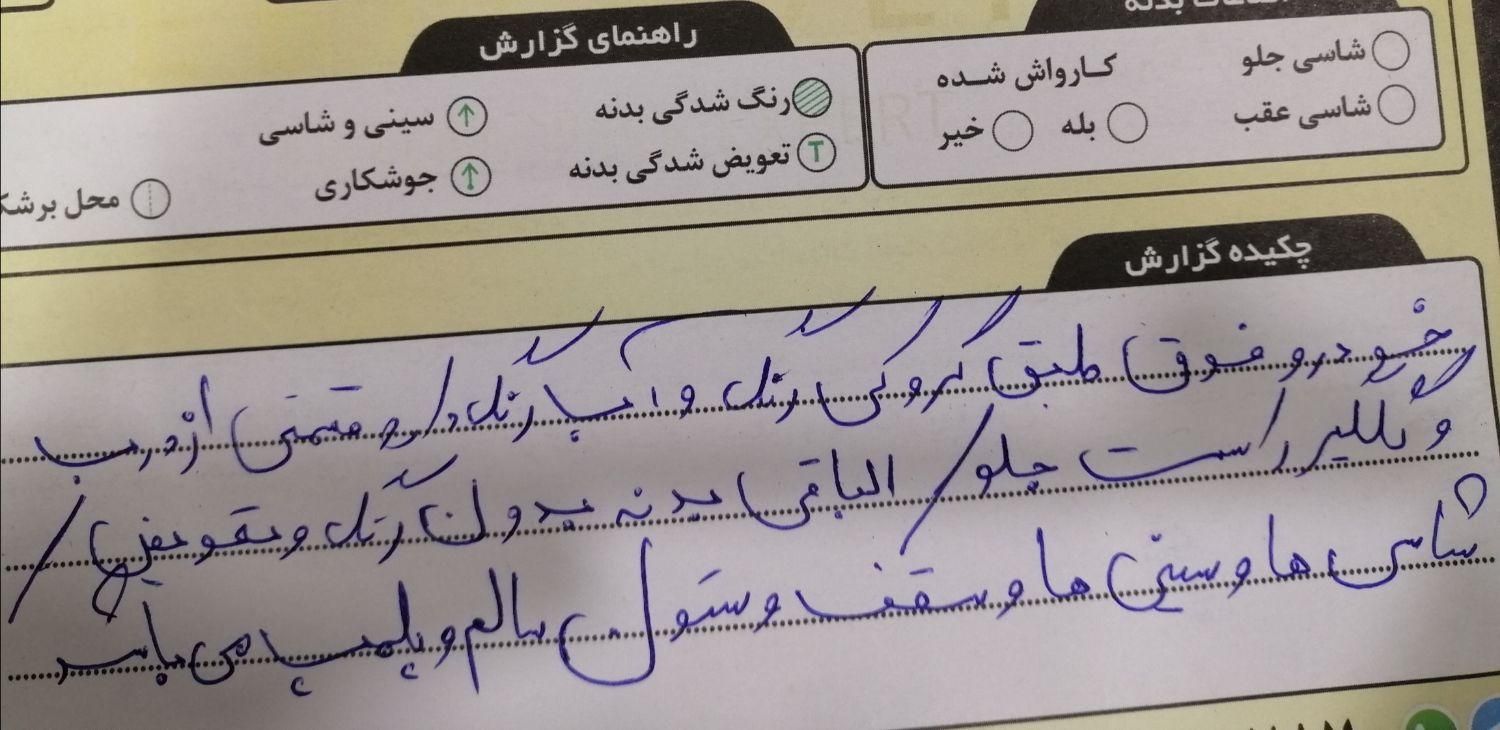 شاسی جلو
شاسی عقب
کارواش شده
بله
خیر
راهنمای گزارش
رنگ شدگی بدنه
تعویض شدگی بدنه
سینی و شاسی
جوشکاری
چکیده گزارش
خودرو فوق طبق کروکی رنگ و آب رنگ دارد قسمتی از درب
و گلگیر راست جلو / الباقی بدنه بدون رنگ و تعویض /
شاسی ها و سینی ها و سقف و ستون سالم و پلمپ می باشد